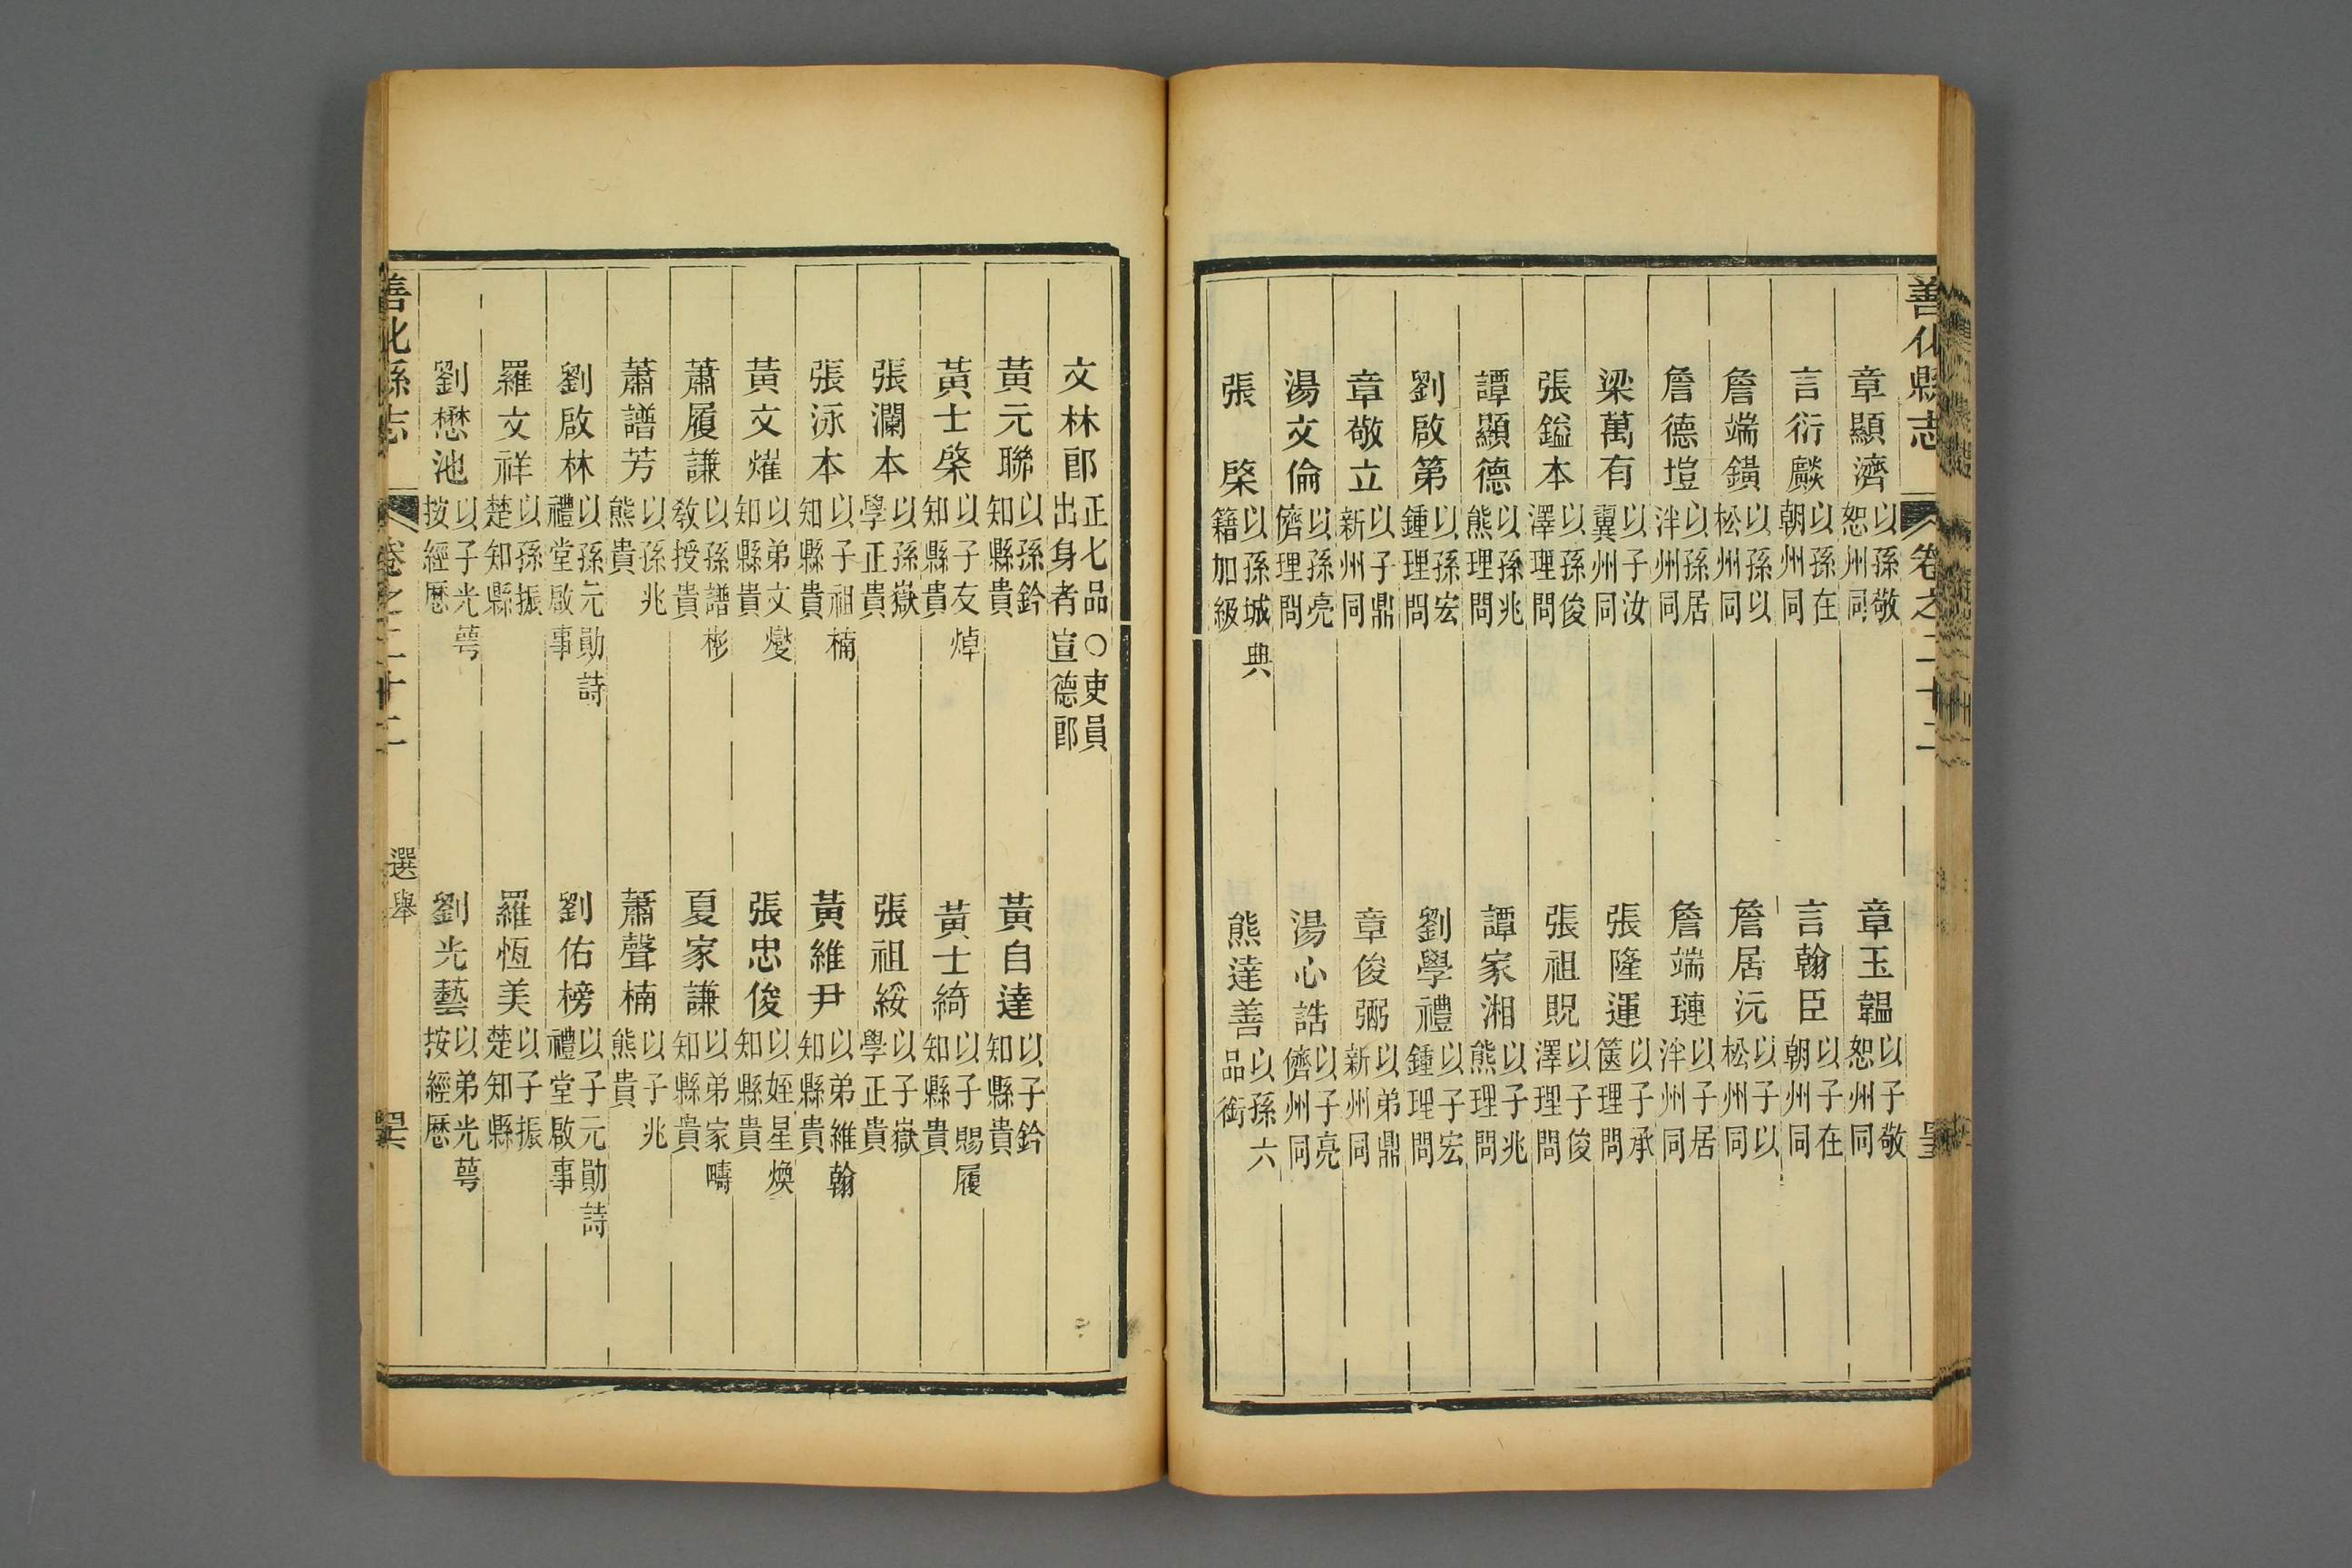 善化縣志 卷之二十二
章顯濟 以孫敬恕州同 章玉韞 以子敬恕州同
言衍麟 以孫在朝州同 言翰臣 以子在朝州同
詹端鐄 以孫以松州同 詹居沅 以子以松州同
詹德塏 以孫居泮州同 詹端璉 以子居泮州同
梁萬有 以子汝翼州同 張隆運 以子承篋理問
張鎰本 以孫俊澤理問 張祖貺 以子俊澤理問
譚顯德 以孫兆熊理問 譚家湘 以子兆熊理問
劉啟第 以孫宏鍾理問 劉學禮 以子宏鍾理問
章敬立 以子鼎新州同 章俊弼 以弟鼎新州同
湯文倫 以孫亮儕理問 湯心誥 以子亮儕州同
張 棨 以孫城典籍加級 熊達善 以孫六品銜
文林郎 正七品○吏員出身者宣德郎
黃元聯 以孫鈐知縣貴 黃自達 以子鈐知縣貴
黃士棨 以子友焯知縣貴 黃士綺 以子賜履知縣貴
張瀾本 以孫嶽學正貴 張祖綏 以子嶽學正貴
張泳本 以子祖楠知縣貴 黃維尹 以弟維翰知縣貴
黃文燿 以弟文燮知縣貴 張忠俊 以姪星煥知縣貴
蕭履謙 以孫譜彬教授貴 夏家謙 以弟家疇知縣貴
蕭譜芳 以孫兆熊貴 蕭聲楠 以子兆熊貴
劉啟林 以孫元勛詩禮堂啟事 劉佑榜 以子元勛詩禮堂啟事
羅文祥 以孫振楚知縣 羅恆美 以子振楚知縣
劉懋池 以子光萼按經歷 劉光藝 以弟光萼按經歷
善化縣志 卷之二十二 選舉